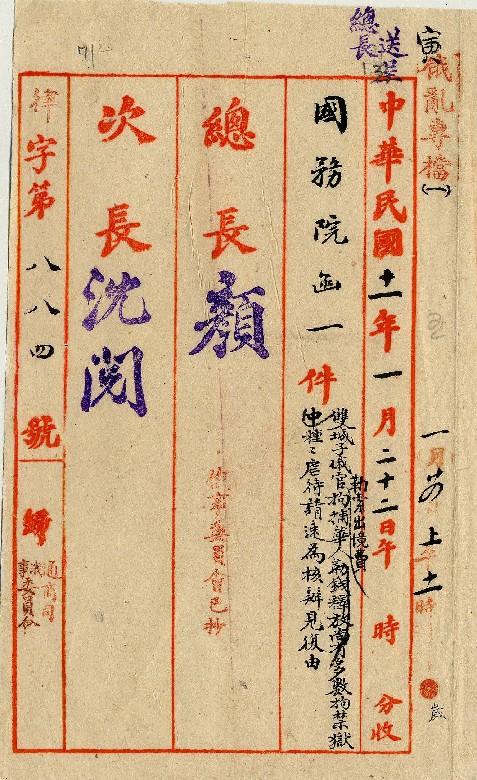 寅
俄亂專檔(一)
總長
送呈
一月 上午十一時
中華民國十一年一月二十二日午 時 分收
國務院函一件
雙城子俄官拘捕華人勒錢釋放尚有多數拘禁獄
勒索出境費
中種種虐待請速為核辦見復由
總長 顏
次長 沈閱
字第八八四號
歸
通商司
事委員會